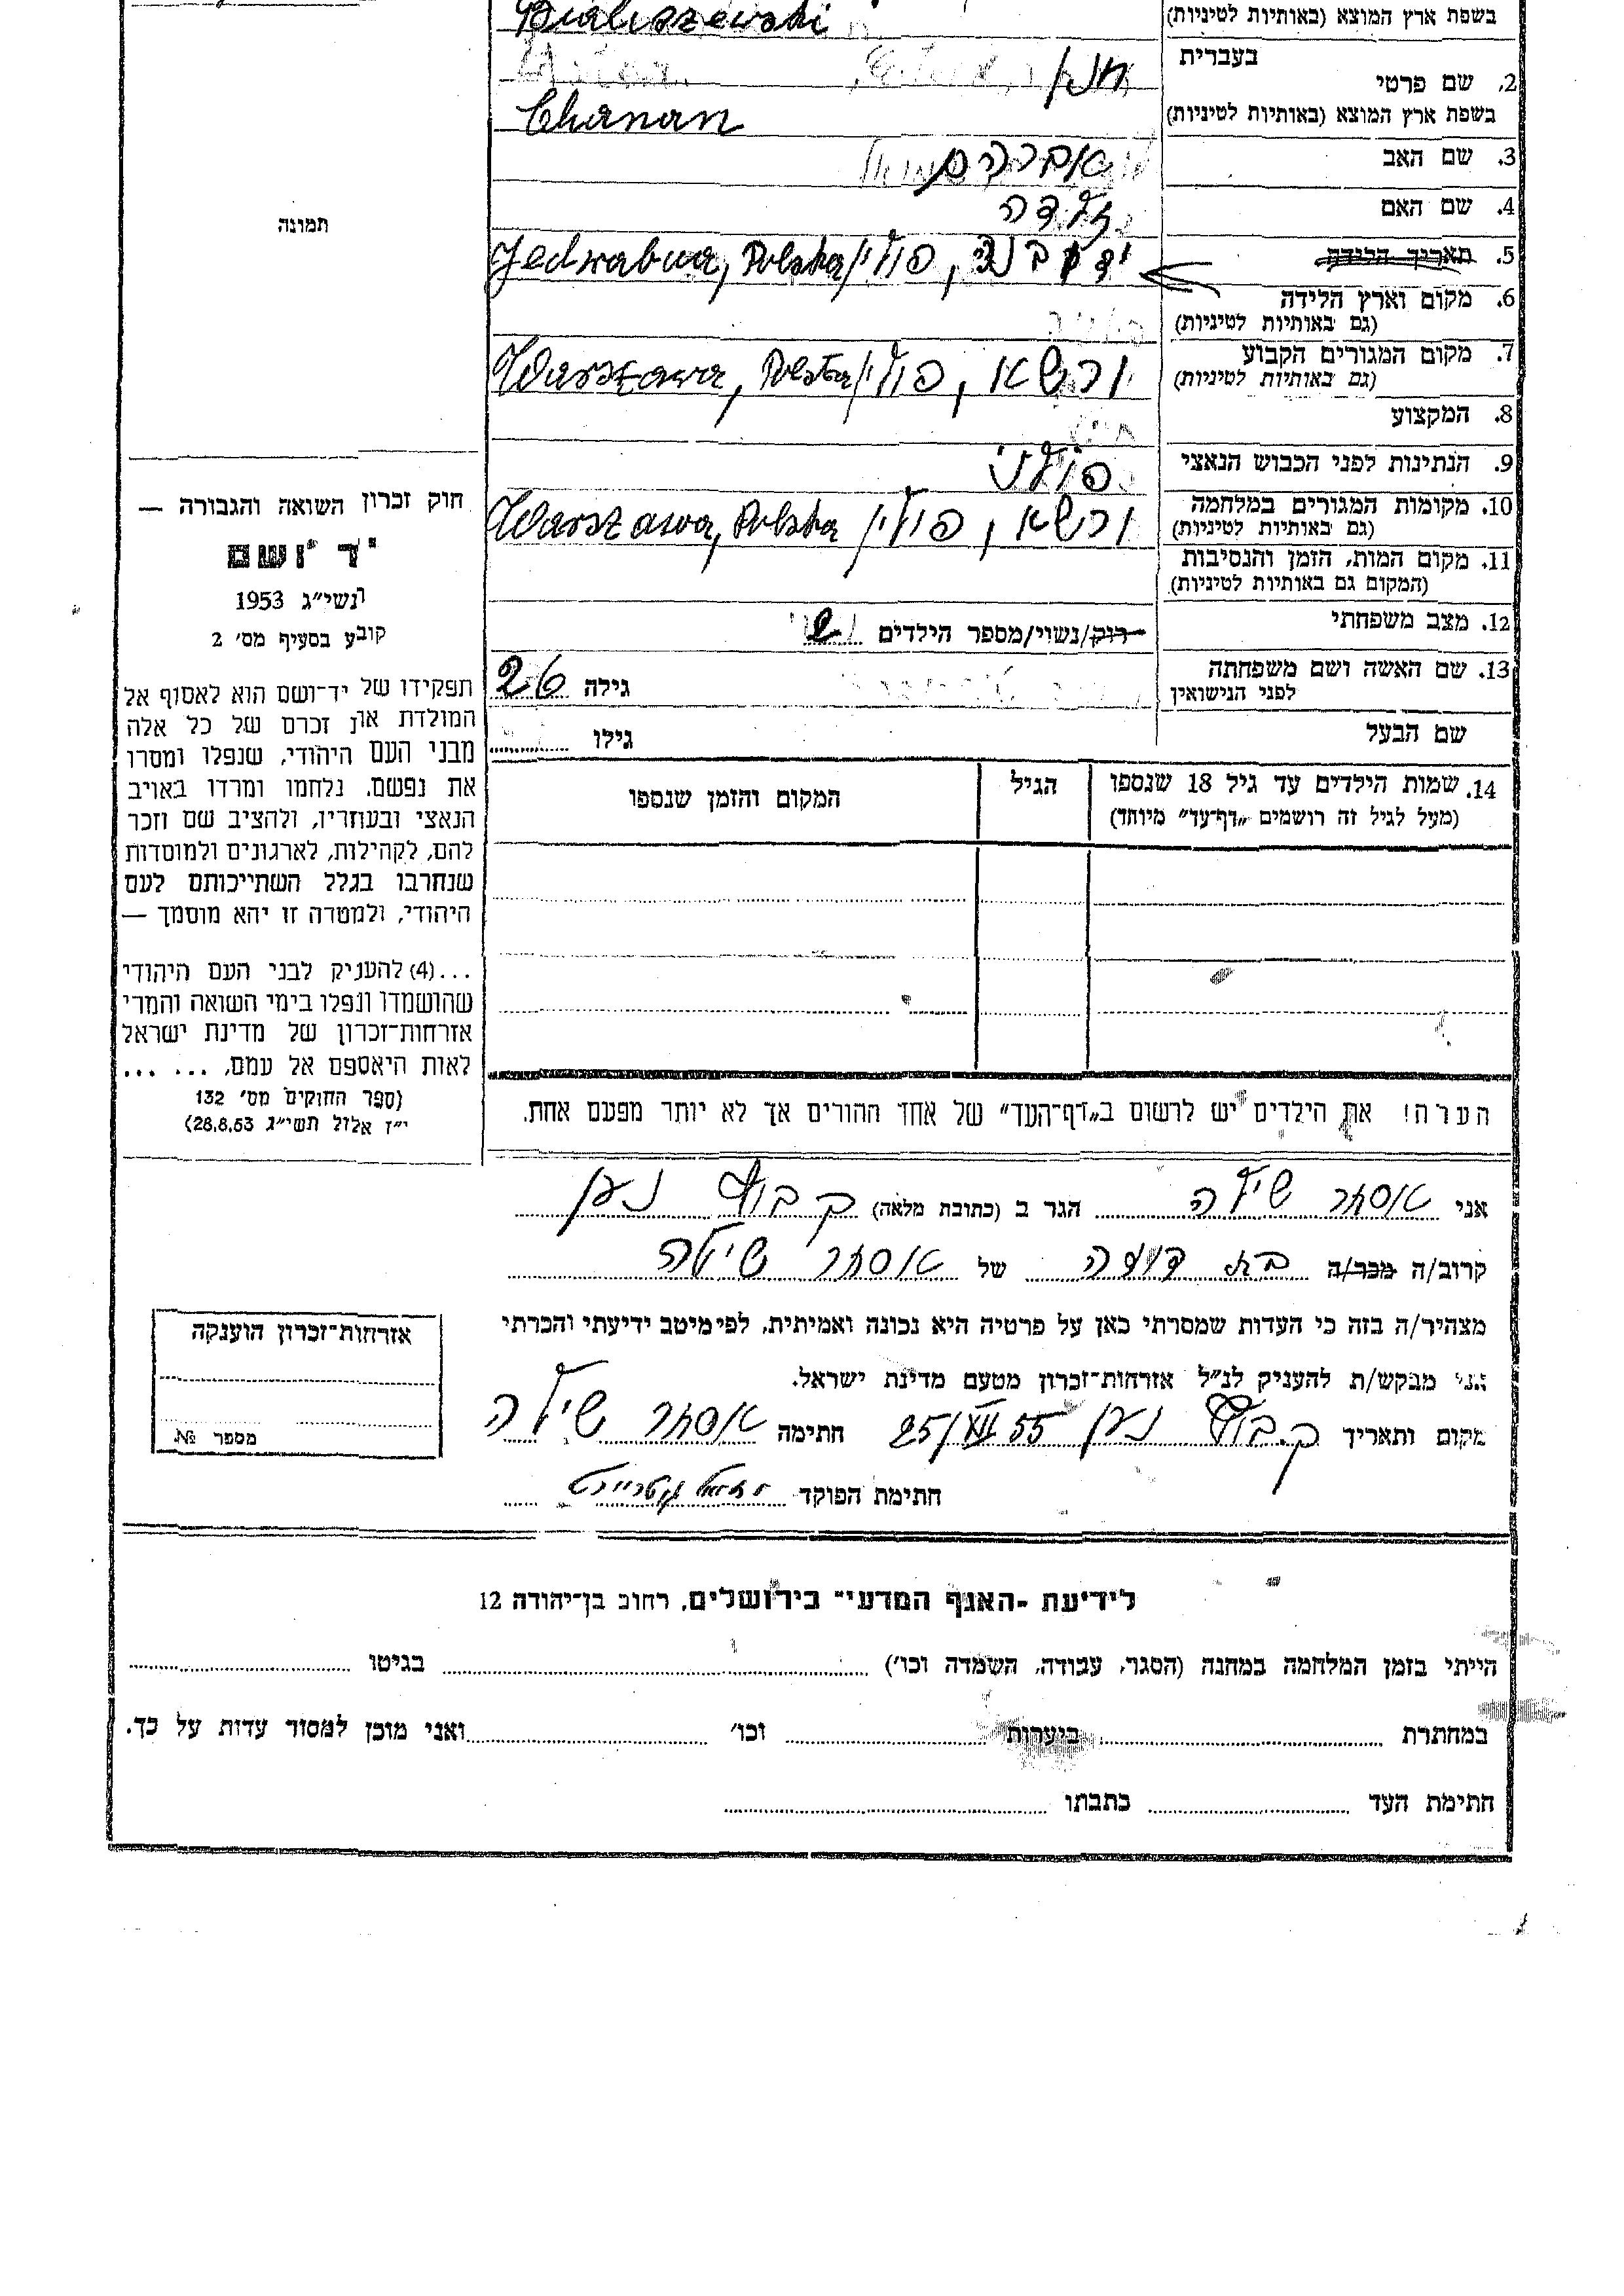 בשפת ארץ המוצא (באותיות לטיניות) Bialiszewski
בעברית
2. שם פרטי חנן
בשפת ארץ המוצא (באותיות לטיניות) Chanan
3. שם האב אברהם
4. שם האם זלדה
5. תאריך הלידה
6. מקום וארץ הלידה ידובנה, פולין Jedwabna, Polska
(גם באותיות לטיניות)
7. מקום המגורים הקבוע ורשא, פולין Warszawa, Polska
(גם באותיות לטיניות)
8. המקצוע
9. הנתינות לפני הכבוש הנאצי פולני
10. מקומות המגורים במלחמה ורשא, פולין Warszawa, Polska
(גם באותיות לטיניות)
11. מקום המות, הזמן והנסיבות
(המקום גם באותיות לטיניות)
12. מצב משפחתי רוק/נשוי/מספר הילדים 2
13. שם האשה ושם משפחתה גילה 26
לפני הנישואין
שם הבעל גילו
14. שמות הילדים עד גיל 18 שנספו הגיל המקום והזמן שנספו
(מעל לגיל זה רושמים „דף־עד" מיוחד)
תמונה
חוק זכרון השואה והגבורה —
יד ושם
תשי"ג 1953
קובע בסעיף מס' 2
תפקידו של יד־ושם הוא לאסוף אל
המולדת את זכרם של כל אלה
מבני העם היהודי, שנפלו ומסרו
את נפשם, נלחמו ומרדו באויב
הנאצי ובעוזריו, ולהציב שם וזכר
להם, לקהילות, לארגונים ולמוסדות
שנחרבו בגלל השתייכותם לעם
היהודי, ולמטרה זו יהא מוסמך —
...(4) להעניק לבני העם היהודי
שהושמדו ונפלו בימי השואה והמרי
אזרחות־זכרון של מדינת ישראל
לאות היאספם אל עמם. ... ...
(ספר החוקים מס' 132
י"ז אלול תשי"ג 28.8.53)
הערה! את הילדים יש לרשום ב„דף־העד" של אחד ההורים אך לא יותר מפעם אחת.
אני אסתר שילה הגר ב (כתובת מלאה) קבוץ נען
קרוב/ה מכר/ה בת דודה של אסתר שילה
מצהיר/ה בזה כי העדות שמסרתי כאן על פרטיה היא נכונה ואמיתית, לפי מיטב ידיעתי והכרתי
אני מבקש/ת להעניק לנ"ל אזרחות־זכרון מטעם מדינת ישראל.
מקום ותאריך קבוץ נען 25/XII 55 חתימה אסתר שילה
חתימת הפוקד
אזרחות־זכרון הוענקה
מספר №
לידיעת -האגף המדעי־ בירושלים, רחוב בן־יהודה 12
הייתי בזמן המלחמה במחנה (הסגר, עבודה, השמדה וכו') בגיטו
במחתרת ביערות וכו' ואני מוכן למסור עדות על כך.
חתימת העד כתבתו